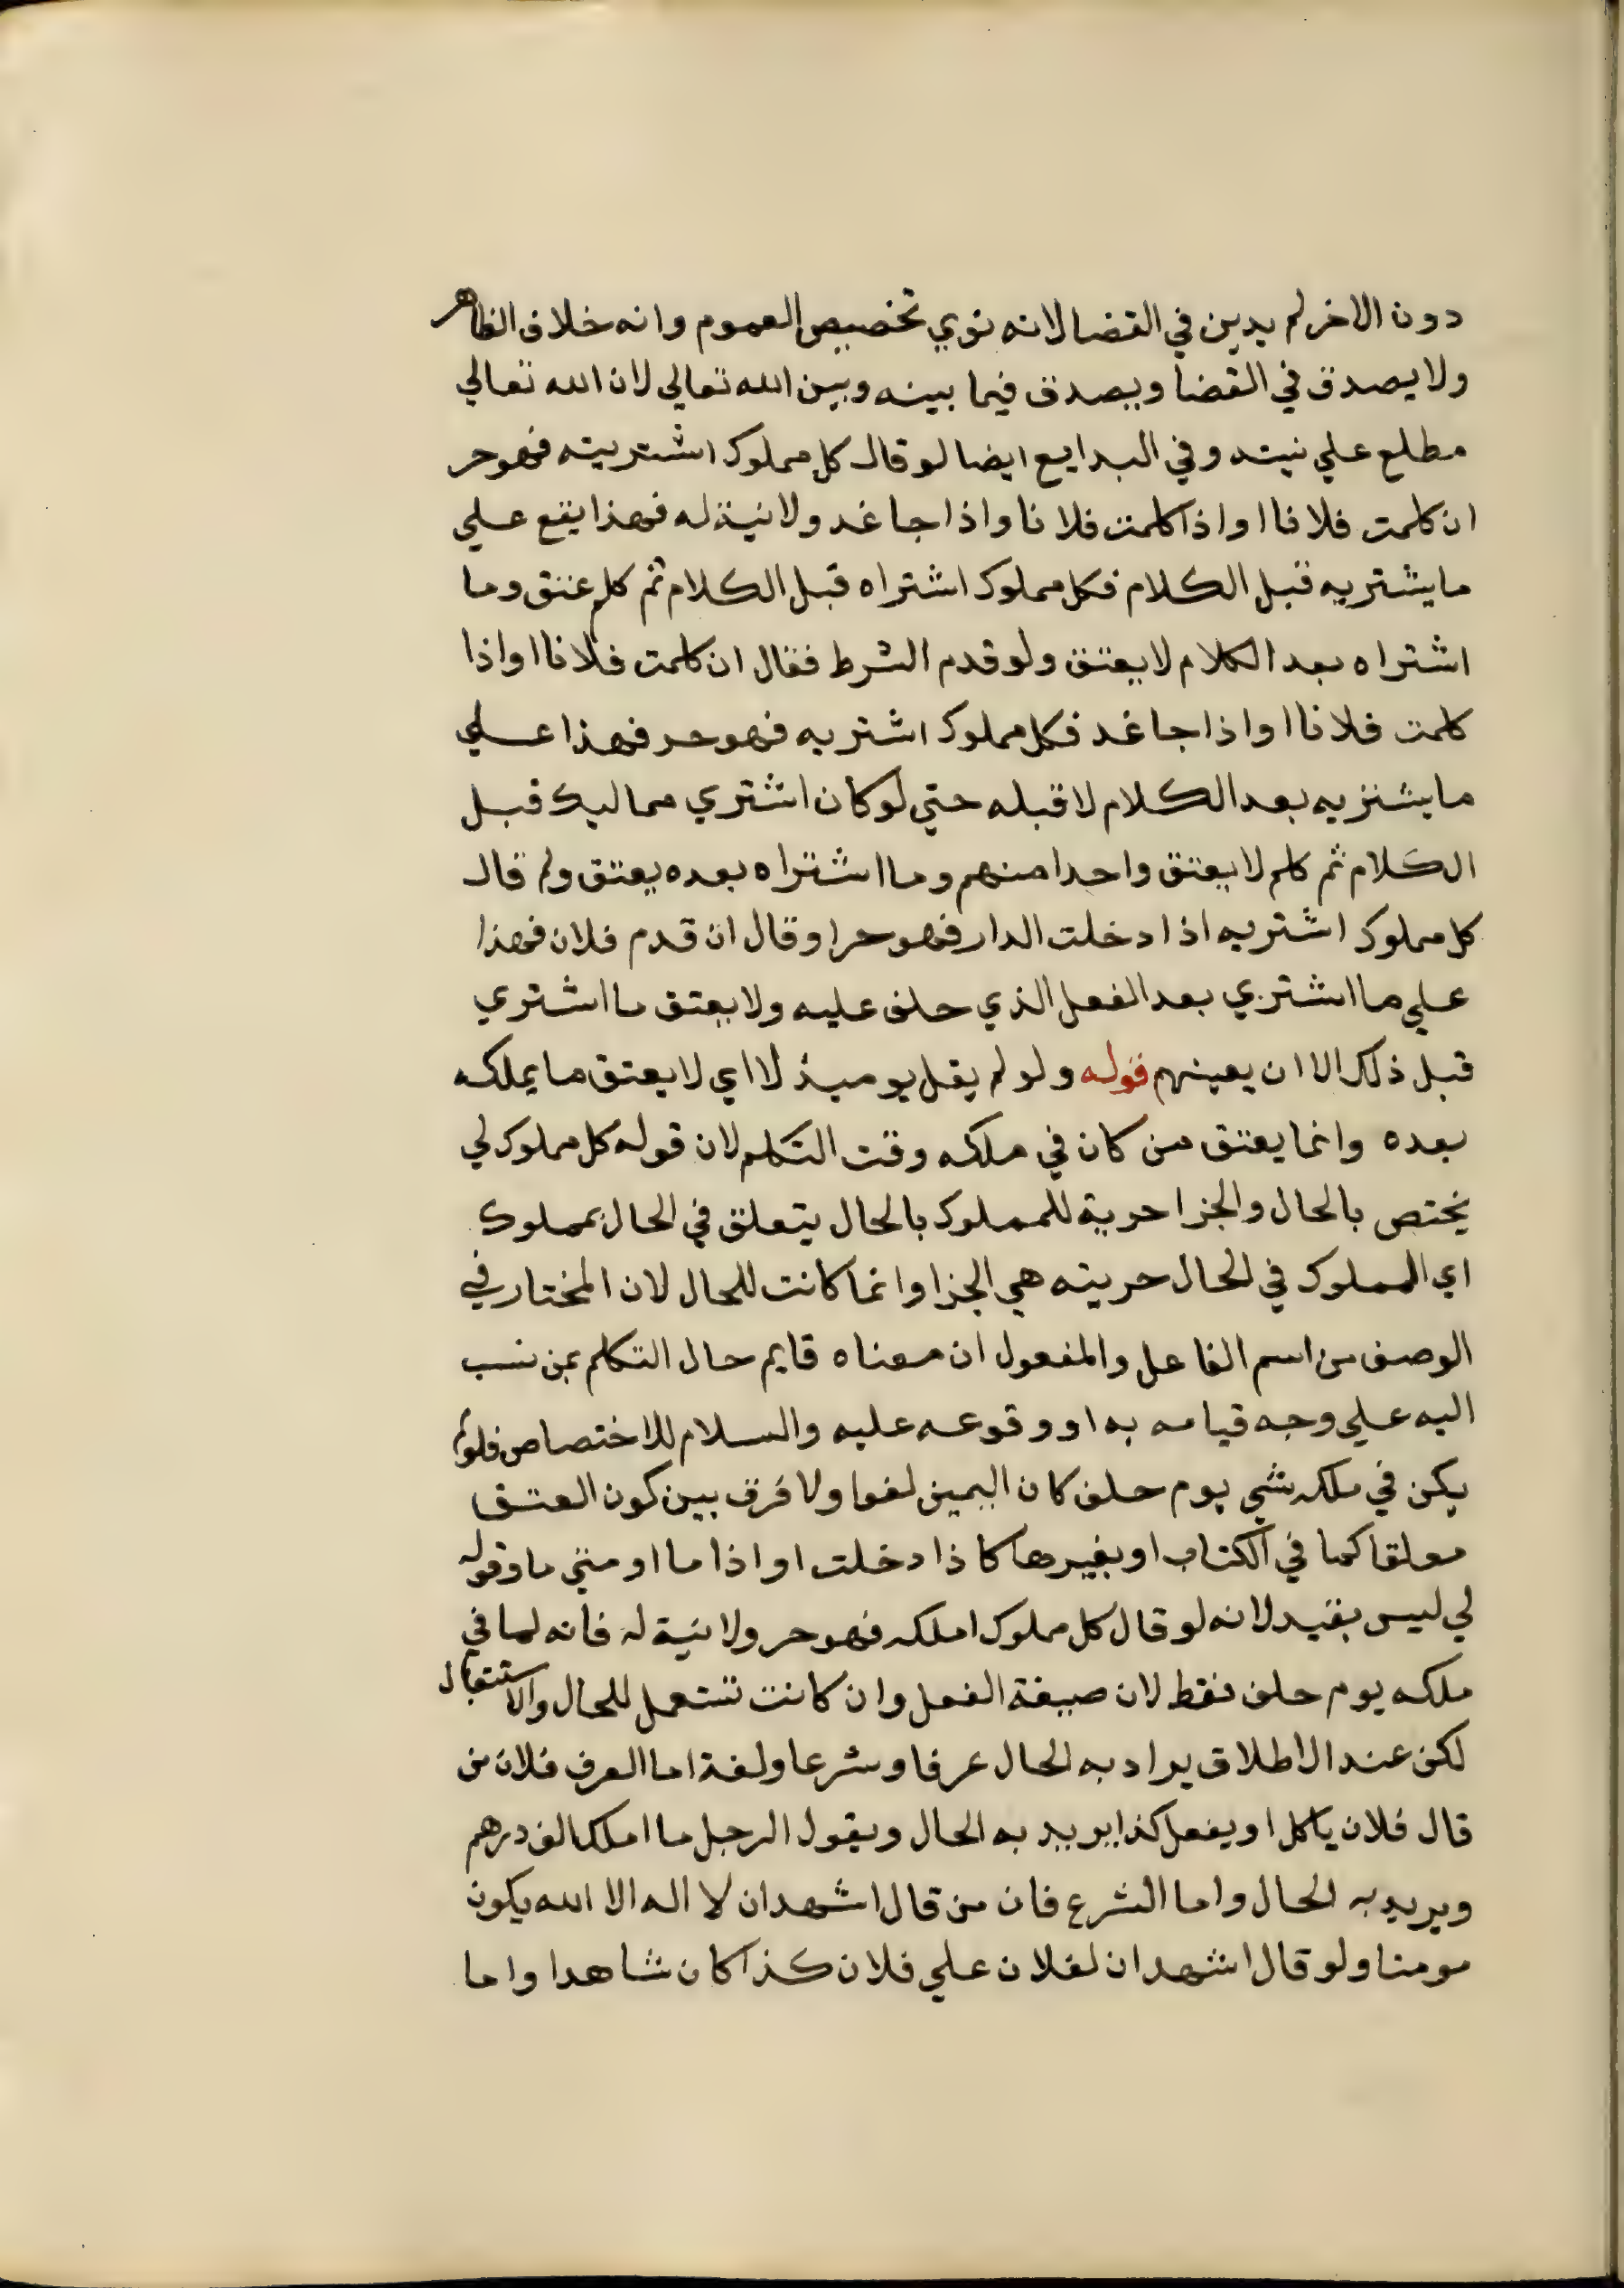 دون الاخر لم يدين في القضا لانه نوي تخصيص العموم وانه خلاف الظاهر
ولا يصدق في القضا ويصدق فيما بينه وبين الله تعالي لان الله تعالي
مطلع علي نيته وفي البدايع ايضا لو قال كل مملوك اشتريته فهو حر
ان كلمت فلانا او اذا كلمت فلانا واذا جا غد ولا نية له فهذا يقع علي
ما يشتريه قبل الكلام فكل مملوك اشتراه قبل الكلام ثم كلم عتق وما
اشتراه بعد الكلام لا يعتق ولو قدم الشرط فقال ان كلمت فلانا او اذا
كلمت فلانا او اذا جا غد فكل مملوك اشتريه فهو حر فهذا علي
ما يشتريه بعد الكلام لا قبله حتي لو كان اشتري مماليك قبل
الكلام ثم كلم لا يعتق واحدا منهم وما اشتراه بعده يعتق ولم قال
كل مملوك اشتريه اذا دخلت الدار فهو حر او قال ان قدم فلان فهذا
علي ما اشتري بعد الفعل الذي حلف عليه ولا يعتق ما اشتري
قبل ذلك الا ان يعينهم قوله ولو لم يقل يوميذ لا اي لا يعتق ما يملكه
بعده وانما يعتق من كان في ملكه وقت التكلم لان قوله كل مملوك لي
يختص بالحال والجزا حرية للمملوك بالحال يتعلق في الحال بمملوك
اي المملوك في الحال حريته هي الجزا وانما كانت للحال لان المختار في
الوصف من اسم الفاعل والمفعول ان معناه قايم حال التكلم بمن نسب
اليه علي وجه قيامه به او وقوعه عليه والسلام للاختصاص فلو لم
يكن في ملكه شي يوم حلف كان اليمين لغوا ولا فرق بين كون العتق
معلقا كما في الكتاب او بغيرها كاذا دخلت او اذا ما او متي ما وقوله
لي ليس بقيد لانه لو قال كل مملوك املكه فهو حر ولا نية له فانه لما في
ملكه يوم حلف فقط لان صيغة الفعل وان كانت تستعمل للحال والاستقبال
لكن عند الاطلاق يراد به الحال عرفا وشرعا ولغة اما العرف فلان من
قال فلان ياكل او يفعل كذا يريد به الحال ويقول الرجل ما املك الف درهم
ويريد به الحال واما الشرع فان من قال اشهد ان لا اله الا الله يكون
مومنا ولو قال اشهد ان لفلان علي فلان كذا كان شاهدا واما